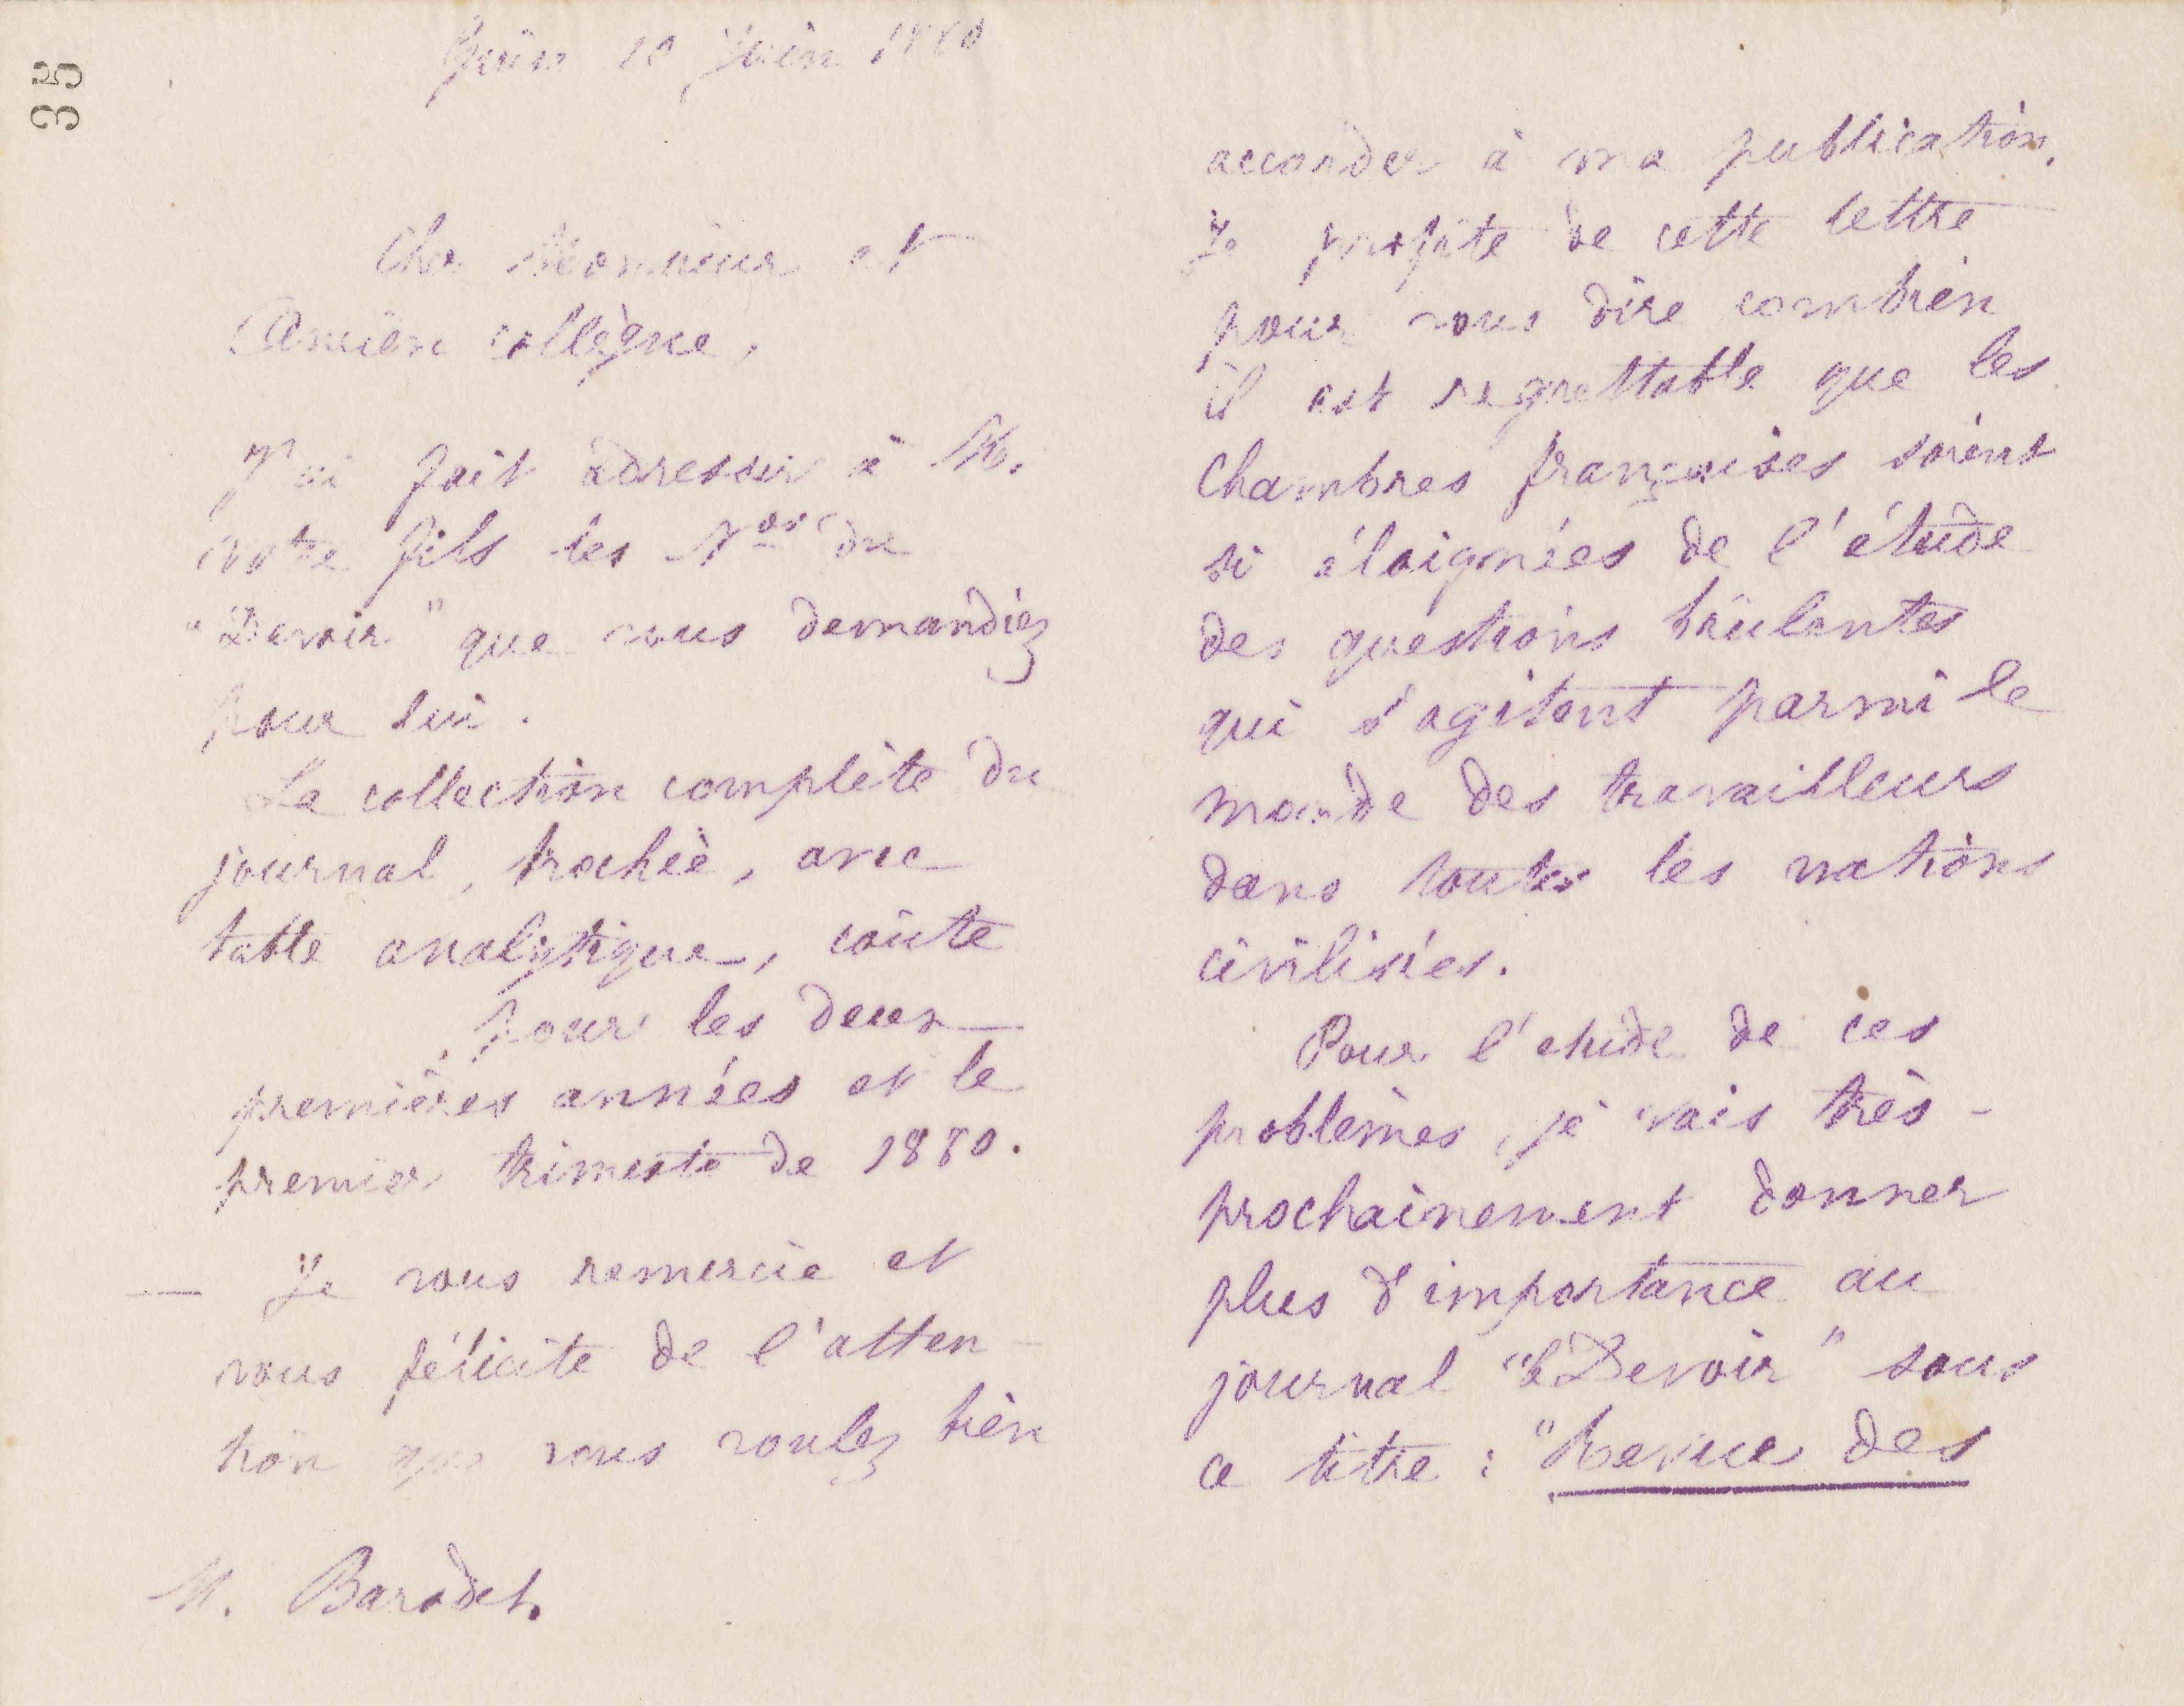 35
Guise 10 Juin 1880
Cher Monsieur et
Ancien collègue,
J'ai fait adresser à M.
votre fils les Nos du
"Devoir" que vous demandiez
pour lui.
La collection complète du
journal, brochée, avec
table analytique, coûte
pour les deux
premières années et le
premier trimestre de 1880.
— Je vous remercie et
vous félicite de l'atten-
tion que vous voulez bien
M. Barodet.
accorder à ma publication.
Je profite de cette lettre
pour vous dire combien
il est regrettable que les
Chambres françaises soient
si éloignées de l'étude
des questions brûlantes
qui s'agitent parmi le
monde des travailleurs
dans toutes les nations
civilisées.
Pour l'étude de ces
problèmes, je vais très-
prochainement donner
plus d'importance au
journal "le Devoir" sous
ce titre : "Revue des